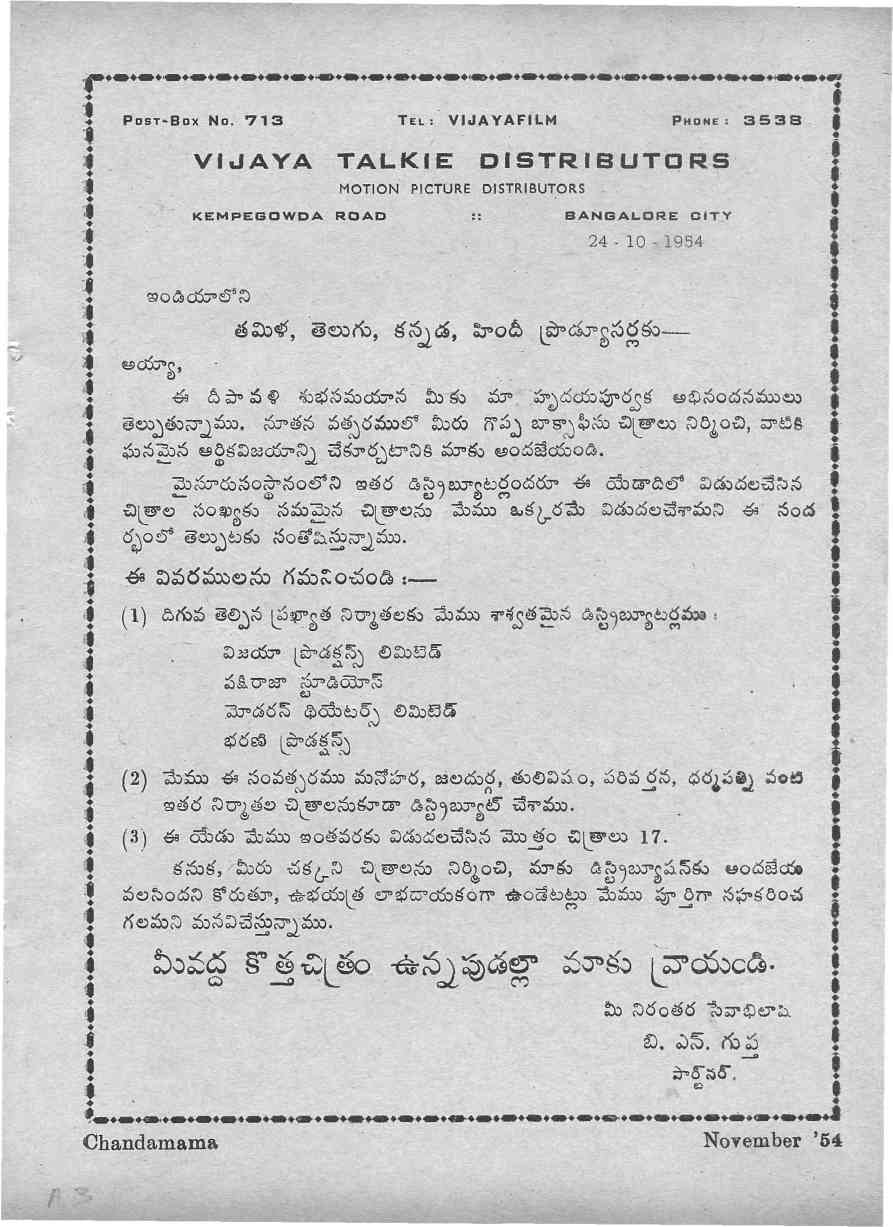 POST-BOX NO. 713 TEL: VIJAYAFILM PHONE: 3538
VIJAYA TALKIE DISTRIBUTORS
MOTION PICTURE DISTRIBUTORS
KEMPEGOWDA ROAD :: BANGALORE CITY
24 - 10 - 1954
ఇండియాలోని
తమిళ, తెలుగు, కన్నడ, హిందీ ప్రొడ్యూసర్లకు—
అయ్యా,
ఈ దీపావళి శుభసమయాన మీకు మా హృదయపూర్వక అభినందనములు
తెల్పుతున్నాము. నూతన వత్సరములో మీరు గొప్ప బాక్సాఫీసు చిత్రాలు నిర్మించి, వాటికి
ఘనమైన ఆర్థికవిజయాన్ని చేకూర్చటానికి మాకు అందజేయండి.
మైసూరుసంస్థానంలోని ఇతర డిస్ట్రిబ్యూటర్లందరూ ఈ యేడాదిలో విడుదలచేసిన
చిత్రాల సంఖ్యకు సమమైన చిత్రాలను మేము ఒక్కరమే విడుదలచేశామని ఈ సంద
ర్భంలో తెల్పుటకు సంతోషిస్తున్నాము.
ఈ వివరములను గమనించండి :—
(1) దిగువ తెల్పిన ప్రఖ్యాత నిర్మాతలకు మేము శాశ్వతమైన డిస్ట్రిబ్యూటర్లము :
విజయా ప్రొడక్షన్స్ లిమిటెడ్
పక్షిరాజా స్టూడియోస్
మోడరన్ థియేటర్స్ లిమిటెడ్
భరణి ప్రొడక్షన్స్
(2) మేము ఈ సంవత్సరము మనోహర, జలదుర్గ, తులివిషం, పరివర్తన, ధర్మపత్ని వంటి
ఇతర నిర్మాతల చిత్రాలనుకూడా డిస్ట్రిబ్యూట్ చేశాము.
(3) ఈ యేడు మేము ఇంతవరకు విడుదలచేసిన మొత్తం చిత్రాలు 17.
కనుక, మీరు చక్కని చిత్రాలను నిర్మించి, మాకు డిస్ట్రిబ్యూషన్‌కు అందజేయ
వలసిందని కోరుతూ, ఉభయత్ర లాభదాయకంగా ఉండేటట్లు మేము పూర్తిగా సహకరించ
గలమని మనవిచేస్తున్నాము.
మీవద్ద కొత్తచిత్రం ఉన్నపుడల్లా మాకు వ్రాయండి.
మీ నిరంతర సేవాభిలాషి
బి. ఎన్. గుప్త
పార్ట్‌నర్.
Chandamama November '54
A 3